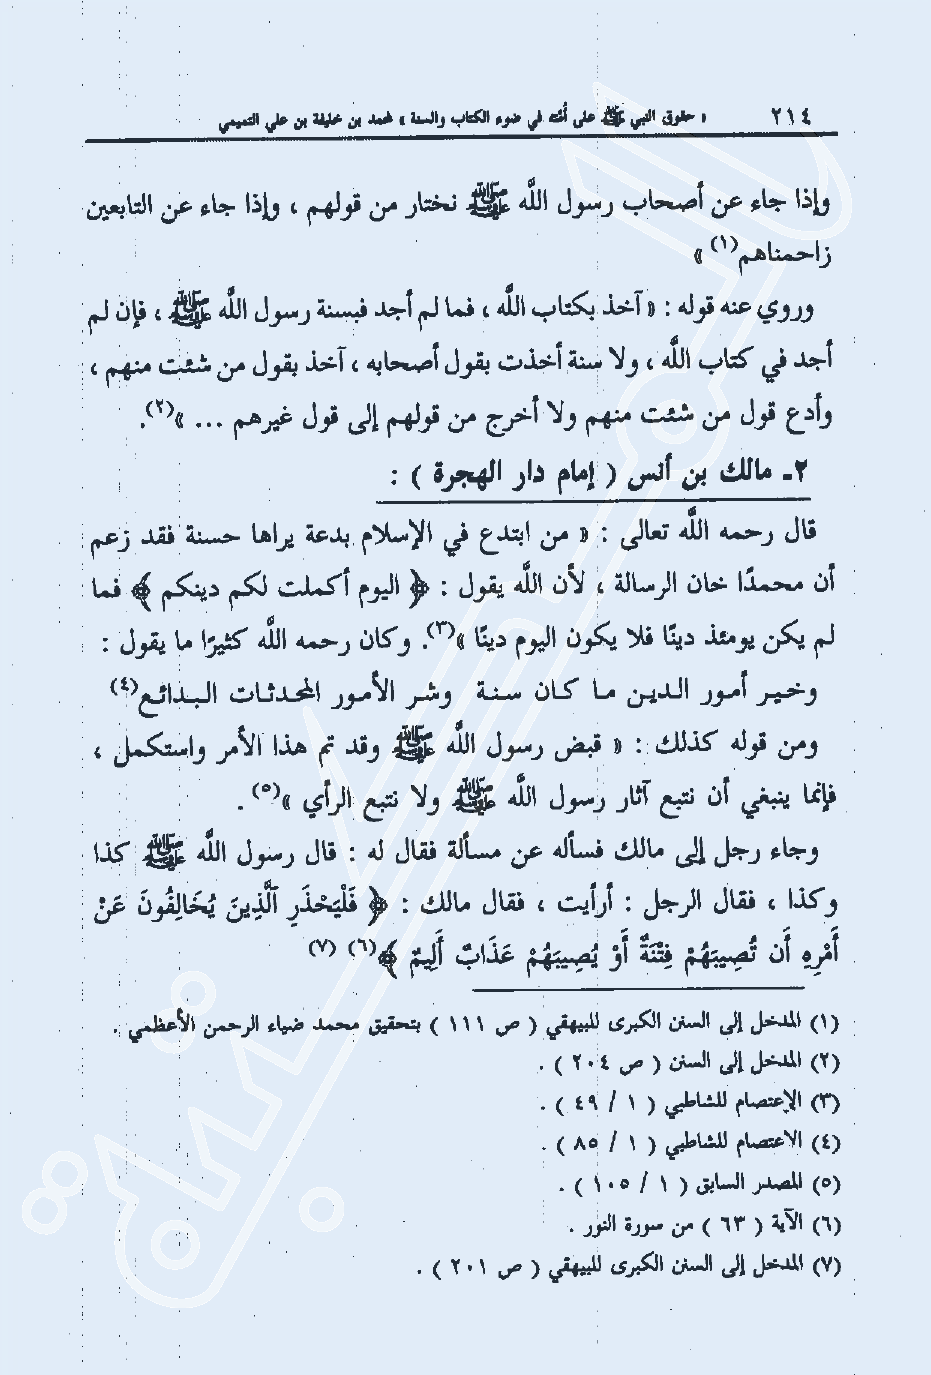 ٢١٤ « حقوق النبي ﷺ على أُمته في ضوء الكتاب والسنة » لمحمد بن خليفة بن علي التميمي
وإذا جاء عن أصحاب رسول الله ﷺ نختار من قولهم ، وإذا جاء عن التابعين
زاحمناهم(١) »
وروي عنه قوله : « آخذ بكتاب الله ، فما لم أجد فبسنة رسول الله ﷺ ، فإن لم
أجد في كتاب الله ، ولا سنة أخذت بقول أصحابه ، آخذ بقول من شئت منهم ،
وأدع قول من شئت منهم ولا أخرج من قولهم إلى قول غيرهم ... »(٢).
٢ـ مالك بن أنس ( إمام دار الهجرة ) :
قال رحمه الله تعالى : « من ابتدع في الإسلام بدعة يراها حسنة فقد زعم
أن محمدًا خان الرسالة ، لأن الله يقول : ﴿ اليوم أكملت لكم دينكم ﴾ فما
لم يكن يومئذ دينًا فلا يكون اليوم دينًا »(٣). وكان رحمه الله كثيرًا ما يقول :
وخير أمور الدين ما كان سنة وشر الأمور المحدثات البدائع(٤)
ومن قوله كذلك : « قبض رسول الله ﷺ وقد تم هذا الأمر واستكمل ،
فإنما ينبغي أن نتبع آثار رسول الله ﷺ ولا نتبع الرأي »(٥) .
وجاء رجل إلى مالك فسأله عن مسألة فقال له : قال رسول الله ﷺ كذا
وكذا ، فقال الرجل : أرأيت ، فقال مالك : ﴿ فَلْيَحْذَرِ ٱلَّذِينَ يُخَالِفُونَ عَنْ
أَمْرِهِ أَن تُصِيبَهُمْ فِتْنَةٌ أَوْ يُصِيبَهُمْ عَذَابٌ أَلِيمٌ ﴾(٦) (٧)
(١) المدخل إلى السنن الكبرى للبيهقي ( ص ١١١ ) بتحقيق محمد ضياء الرحمن الأعظمي .
(٢) المدخل إلى السنن ( ص ٢٠٤ ) .
(٣) الإعتصام للشاطبي ( ١ / ٤٩ ) .
(٤) الاعتصام للشاطبي ( ١ / ٨٥ ) .
(٥) المصدر السابق ( ١ / ١٠٥ ) .
(٦) الآية ( ٦٣ ) من سورة النور .
(٧) المدخل إلى السنن الكبرى للبيهقي ( ص ٢٠١ ) .